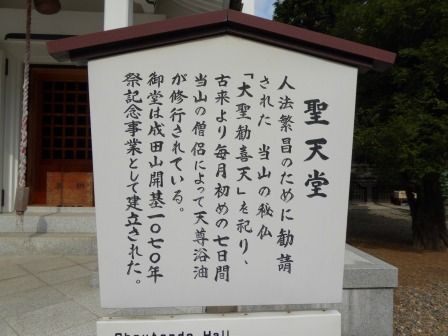 聖天堂
人法繁昌のために勧請
された 当山の秘仏
「大聖勧喜天」を祀り、
古来より毎月初めの七日間
当山の僧侶によって天尊浴油
が修行されている。
御堂は成田山開基一〇七〇年
祭記念事業として建立された。
Shoutendo Hall